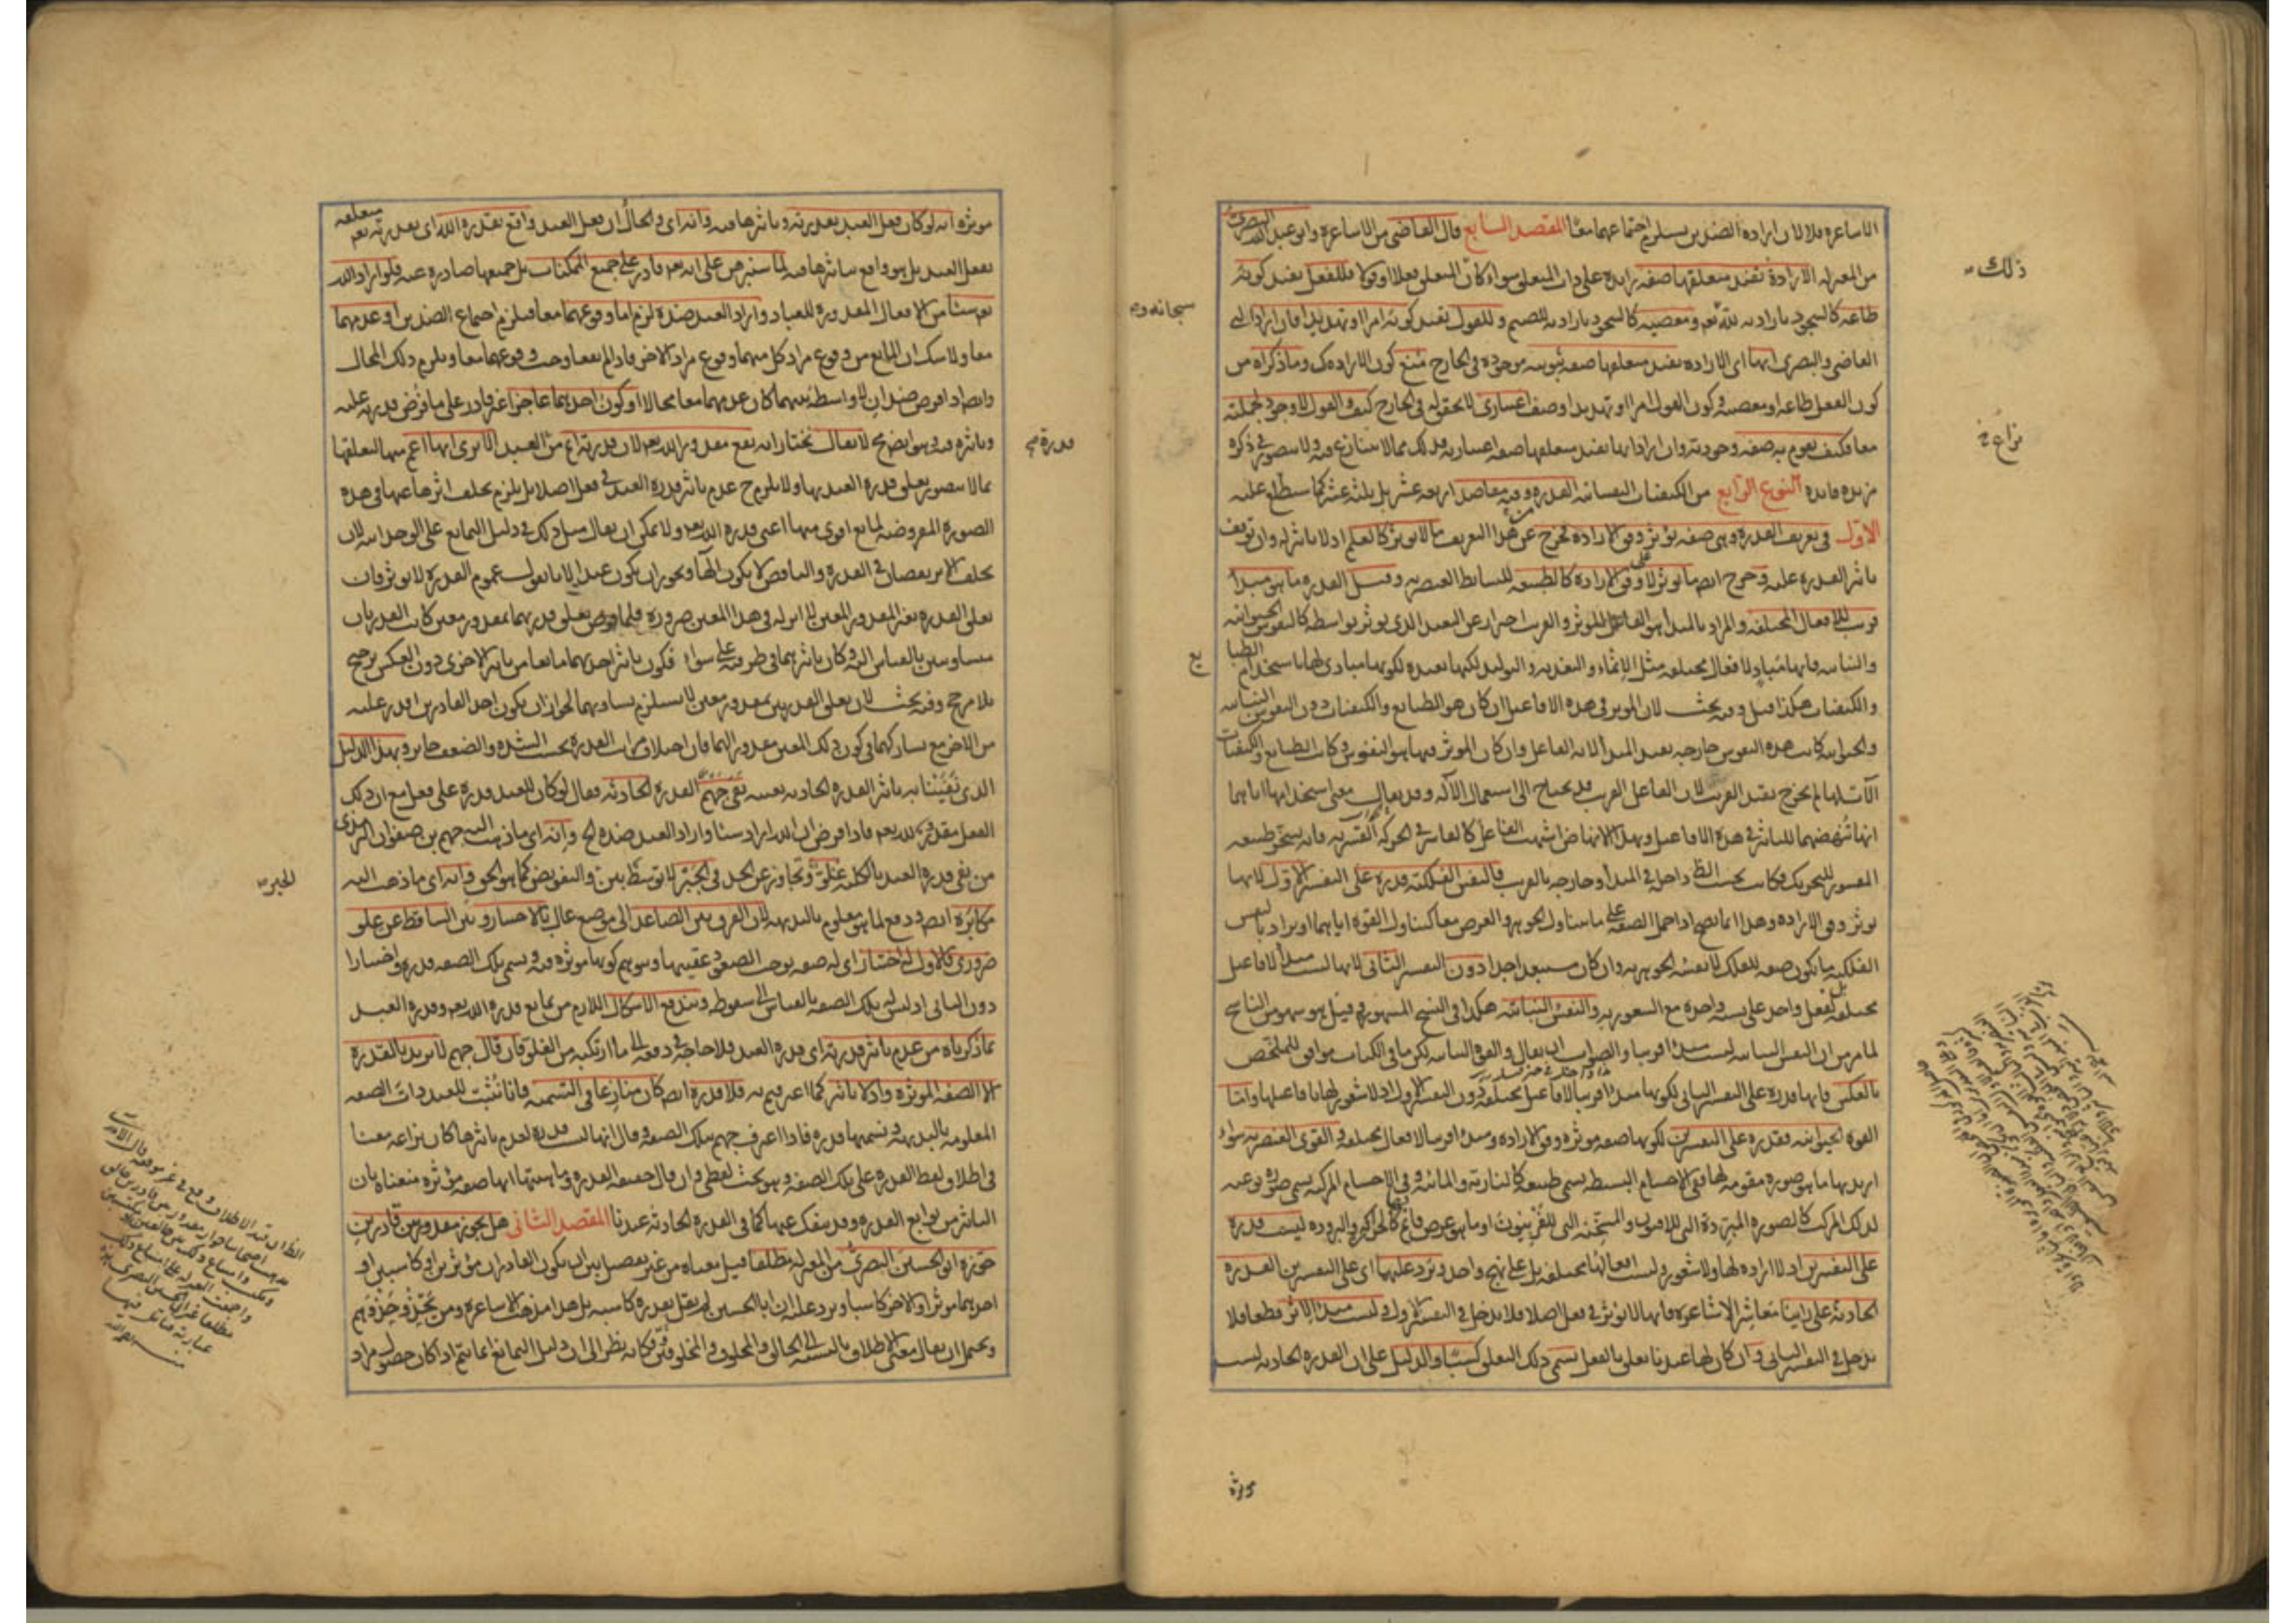 الاشاعرة فلان ارادة الضدين يستلزم اجتماعهما معا المقصد السابع قال القاضى من الاشاعرة وابو عبد الله البصرى
من المعتزلة الارادة تفيد متعلقها صفة زايدة على ذات المتعلق سواء كان المتعلق فعلا او قولا فللفعل تفيد كونه
طاعة كالسجود بارادته لله تعم ومعصية كالسجود بارادته للصنم وللقول تفيد كونه امرا او تهديدا فان اراد
القاضى والبصرى انها اى الارادة تفيد متعلقها صفة ثبوتية موجودة فى الخارج منع كون الارادة كك وما ذكراه من
كون الفعل طاعة او معصية وكون القول امرا او تهديدا وصف اعتبارى لا تحقق له فى الخارج كيف والقول لا وجود لجملته
معا فكيف يقوم به صفة وجودية وان ارادا انها تفيد متعلقها صفة اعتبارية فذلك مما لا ننازع فيه ولا يتصور فى ذكره
مزيد فايدة النوع الرابع من الكيفيات النفسانية القدرة وفيه مقاصد اربعة عشر بل ثلثة عشر كما ستطلع عليه
الاول فى تعريف القدرة وهى صفة تؤثر وفق الارادة فخرج عن هذا التعريف ما لا يؤثر كالعلم اذ لا تاثير له وان توقف
تاثير القدرة عليه وخرج ايضا ما يؤثر لا على وفق الارادة كالطبيعة للبسايط العنصرية وقيل القدرة ما هو مبدأ
قريب للافعال المختلفة والمراد بالمبدأ هو الفاعل المؤثر والقريب احتراز عن البعيد الذى يؤثر بواسطة كالنفوس الحيوانية
والنباتية فانها مباد لافعال مختلفة مثل الانماء والتغذية والتوليد لكنها بعيدة لكونها مبادى لها باستخدام الطبا
والكيفيات هكذا قيل وفيه بحث لان المؤثر فى هذه الافاعيل ان كان هو الطبايع والكيفيات دون النفوس النباتية
والحيوانية كانت هذه النفوس خارجة بقيد المبدأ لانه الفاعل وان كان المؤثر فيها هو النفوس وكانت الطبايع والكيفيات
الآت لها لم تخرج بقيد القريب لان الفاعل القريب قد يحتاج الى استعمال الآلة وقد يقال معنى استخدامها اياهما
انها تنهضهما للتاثير فى هذه الافاعيل وبهذا الانهاض اشبهت الفاعل كالقاسر فى الحركة القسرية فانه يسخر طبيعة
المقسور للتحريك فكانت بحسب الظ داخلة فى المبدأ وخارجة بالقريب فالنفس الفلكية قدرة على التفسير الاول لانها
تؤثر وفق الارادة وهذا انما يصح اذا حمل الصفة على ما يتناول الجوهر والعرض معا كتناول القوة اياهما او يراد بالنفس
الفلكية ما يكون صفة للفلك لا نفسه الجوهرية وان كان مستبعدا جدا دون التفسير الثانى لانها ليست مبدأ لافاعيل
مختلفة بل لفعل واحد على نسبة واحدة مع الشعور به والنفس النباتية هكذا فى النسخ المشهورة قيل هو سهو من الناسخ
لما مر من ان النفس النباتية ليست مبدأ قريبا والصواب ان يقال والقوة النباتية لكن ما فى الكتاب موافق للملخص
بالعكس فانها قدرة على التفسير الثانى لكونها مبدأ قريبا لافاعيل مختلفة دون التفسير الاول اذ لا شعور لها بافاعيلها واما
القوة الحيوانية فقدرة على التفسيرين لكونها صفة مؤثرة وفق الارادة ومبدأ قريبا لافعال مختلفة والقوى العنصرية سواء
اريد بها ما هو صورة مقومة لها ففى الاجسام البسيطة يسمى طبيعة كالنارية والمائية وفى الاجسام المركبة يسمى صورة نوعية
لذلك المركب كالصورة المبردة التى للافيون والمسخنة التى للفربيون او ما هو عرض قائم بها كالحرارة والبرودة ليست قدرة
على التفسيرين اذ لا ارادة لها ولا شعور وليست افعالها مختلفة بل على نهج واحد ويرد عليهما اى على التفسيرين القدرة
الحادثة على راينا معاشر الاشاعرة فانها لا تؤثر فى فعل اصلا فلا تدخل فى التفسير الاول وليست مبدأ لاثر قطعا فلا
تدخل فى التفسير الثانى وان كان لها عندنا تعلق بالفعل يسمى ذلك التعلق كسبا والدليل على ان القدرة الحادثة ليست
ذلك
سبحانه وم
نزاع خ
يع
مؤثرة
مؤثرة انه لو كان فعل العبد بقدرته وتاثيرها فيه وانه اى والحال ان فعل العبد واقع بقدرة الله اى بقدرته تعم متعلقة
بفعل العبد بل هو واقع بتاثيرها فيه لما سنبرهن على انه تعم قادر على جميع الممكنات بل جميعها صادرة عنه فلو اراد الله
تعم شيئا من الافعال المقدورة للعباد واراد العبد ضده لزم اما وقوعهما معا فيلزم اجتماع الضدين او عدمهما
معا ولا شك ان المانع من وقوع مراد كل منهما وقوع مراد الاخر فاذا لم يقعا وجب وقوعهما معا ويلزم ذلك المحال
وايضا اذا فرض ضدان لا واسطة بينهما كان عدمهما معا محالا او كون احدهما عاجزا غير قادر على ما فرض قدرته عليه
وتاثيره فيه وهو ايضا مح لا يقال نختار انه يقع مقدور الله تعم لان قدرته اعم من العبد الا ترى انها اعم منها لتعلقها
بما لا يتصور تعلق قدرة العبد بها ولا يلزم ح عدم تاثير قدرة العبد فى فعل اصلا بل يلزم تخلف اثرها عنها فى هذه
الصورة المفروضة لمانع اقوى منها اعنى قدرة الله تعم ولا يمكن ان يقال مثل ذلك فى دليل التمانع على الوحدانية لان
تخلف الاثر نقصان فى القدرة والناقص لا يكون الها ويجوز ان يكون عبدا لانا نقول عموم القدرة لا يؤثر فان
تعلق القدرة بغير المقدور المعين لا اثر له فى هذا المعين ضرورة فلما فرض تعلق قدرتهما بمقدور معين كانت القدرتان
متساويتين بالقياس اليه وكان تاثيرهما فى طرفيه على سواء فكون تاثير احدهما مانعا من تاثير الاخرى دون العكس ترجيح
بلا مرجح وفيه بحث لان تعلق القدرتين بمقدور معين لا يستلزم تساويهما لجواز ان يكون احد القادرين اقدر عليه
من الاخر مع تشاركهما فى كون ذلك المعين مقدورا لهما فان اختلاف مراتب القدرة بحسب الشدة والضعف جايز وبهذا الدليل
الذى نفينا به تاثير القدرة الحادثة بعينه نفى جهم القدرة الحادثة فقال لو كان للعبد قدرة على فعل مع ان ذلك
الفعل مقدور لله تعم فاذا فرض ان الله اراد شيئا واراد العبد ضده الخ وانه اى ما ذهب اليه جهم بن صفوان الترمذى
من نفى قدرة العبد بالكلية غلو وتجاوز عن الحد فى الجبر لا توسط بين والتفويض كما هو الحق وانه اى ما ذهب اليه
مكابرة ايضا ودفع لما هو معلوم بالبديهة لان الفرق بين الصاعد الى موضع عال بالاختيار وبين الساقط عن علو
ضرورى فالاول له اختيار اى له صفة توجد الصعود عقيبها ويتوهم كونها مؤثرة فيه ويسمى تلك الصفة قدرة واختيارا
دون الثانى اذ ليس له تلك الصفة بالقياس الى سقوطه ويندفع الاشكال اللازم من تمانع قدرة الله تعم وقدرة العبد
بما ذكرناه من عدم تاثير قدرته اى قدرة العبد فلا حاجة فى دفعه الى ما ارتكبه من الغلو فان قال جهم لا نريد بالقدرة
الا الصفة المؤثرة واذ لا تاثير كما اعترفتم به فلا قدرة ايضا كان منازعا فى التسمية فانا نثبت للعبد ذات الصفة
المعلومة بالبديهة ونسميها قدرة فاذا اعترف جهم بتلك الصفة وقال انها ليست قدرة لعدم تاثيرها كان نزاعه معنا
فى اطلاق لفظ القدرة على تلك الصفة وهو بحث لفظى وان قال حقيقة القدرة وماهيتها انها صفة مؤثرة منعناه بان
التاثير من توابع القدرة وقد ينفك عنها كما فى القدرة الحادثة عندنا المقصد الثانى هل يجوز مقدور بين قادرين
جوزه ابو الحسين البصرى من المعتزلة مطلقا قيل معناه من غير تفصيل بين ان يكون القادران مؤثرين او كاسبين او
احدهما مؤثرا والاخر كاسبا ويرد عليه ان ابا الحسين لم يقل بقدرة كاسبة بل هذا مذهب الاشاعرة ومن يحذو حذوهم
ويحتمل ان يقال معنى الاطلاق بالنسبة الى الخالق والمخلوق والمخلوقين فكانه نظر الى ان دليل التمانع انما يتم اذا كان حصول مراد
قدرة مح
الجبر